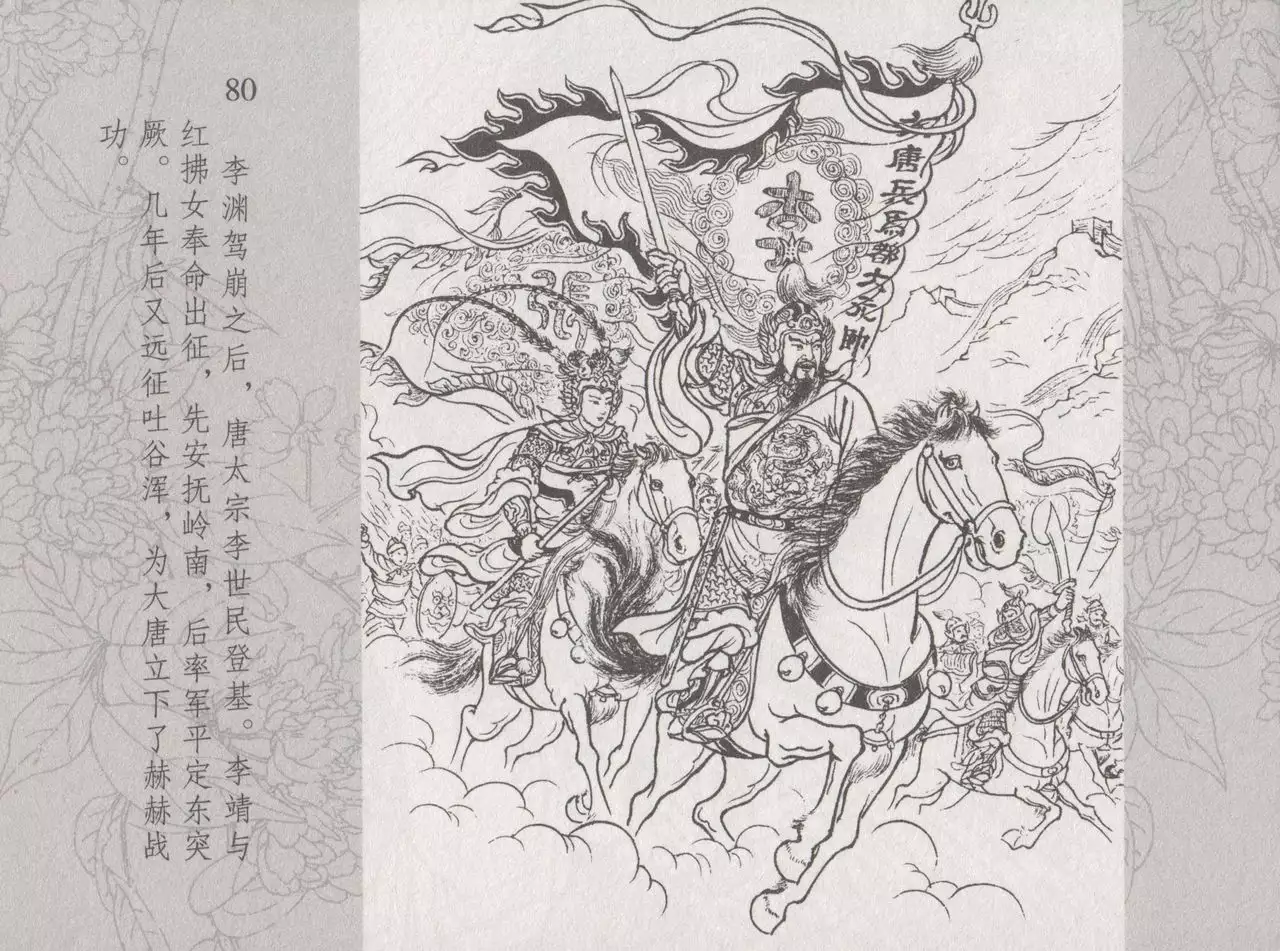 80
李渊驾崩之后，唐太宗李世民登基。李靖与
红拂女奉命出征，先安抚岭南，后率军平定东突
厥。几年后又远征吐谷浑，为大唐立下了赫赫战
功。
大唐兵馬都大元帥
李